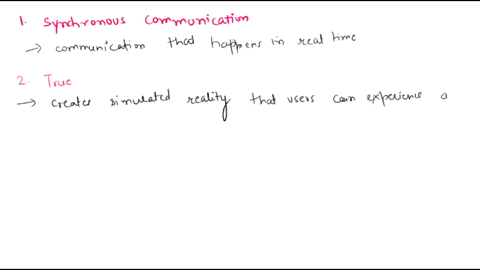 1. Synchronous Communication
→ communication that happens in real time
2. True
→ creates simulated reality that users can experience a